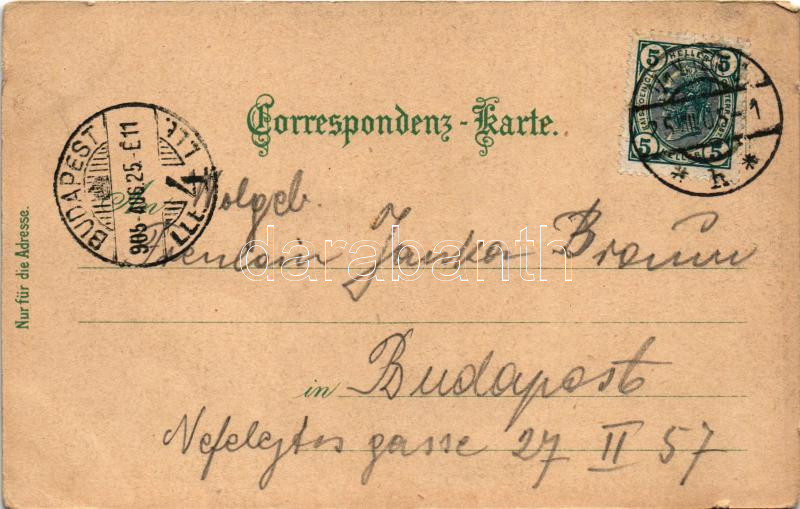 5 HELLER 5
5 HELLER 5
Correspondenz-Karte.
BUDAPEST
905 AUG. 25. É 11
An Wolgeb.
Fräulein Janka Braun
in Budapest
Nefelejtsgasse 27 II 57
Nur für die Adresse.
darabanth